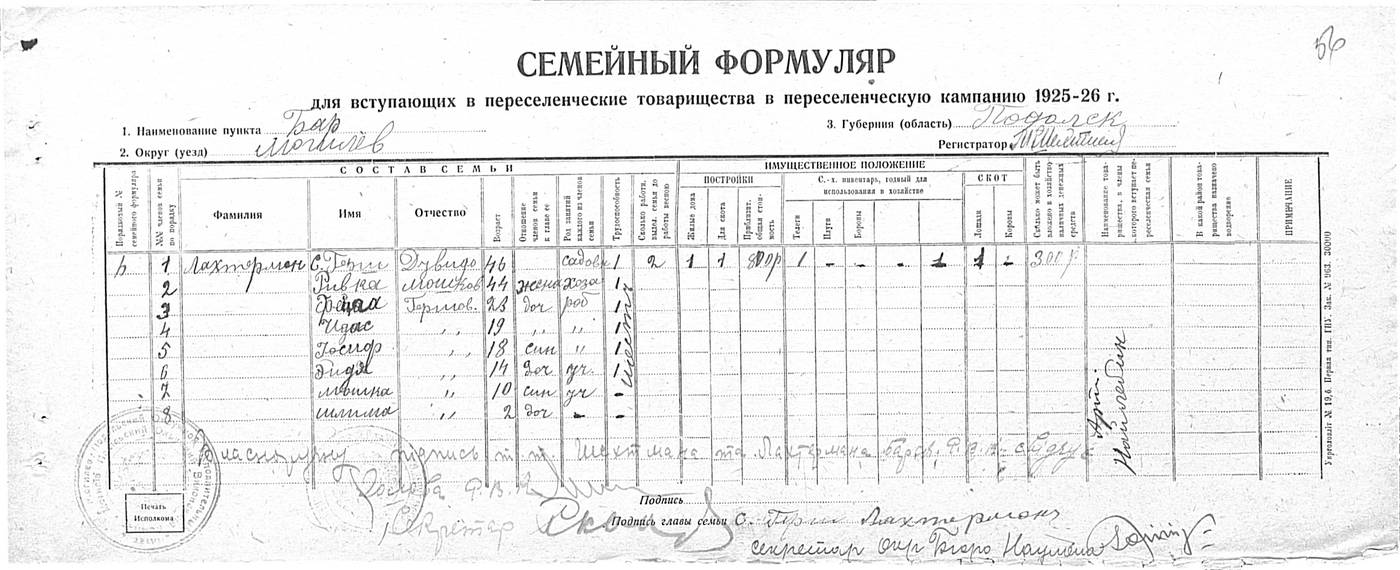 56
СЕМЕЙНЫЙ ФОРМУЛЯР
для вступающих в переселенческие товарищества в переселенческую кампанию 1925-26 г.
1. Наименование пункта Бар
3. Губерния (область) Подольск
2. Округ (уезд) Могилёв
Регистратор
СОСТАВ СЕМЬИ
ИМУЩЕСТВЕННОЕ ПОЛОЖЕНИЕ
ПОСТРОЙКИ
С.-х. инвентарь, годный для использования в хозяйстве
СКОТ
Порядковый № семейного формуляра
№№ членов семьи по порядку
Фамилия
Имя
Отчество
Возраст
Отношение членов семьи к главе ее
Род занятий каждого из членов семьи
Трудоспособность
Сколько работн. выдел. семья до работы весною
Жилые дома
Для скота
Приблизит. общая стоимость
Телеги
Плуги
Бороны
Лошади
Коровы
Сколько может быть вложено в хозяйство наличных денежных средств
Наименование товарищества, в члены которого вступает переселенческая семья
В какой район товарищества назначено водворение
ПРИМЕЧАНИЕ
1 Лахтерман С. Герш Дувидо 46 садов 1 2 1 1 800р 1 - - - 1 1 - 300 р
2 Ривка Мошков 44 жена хоза 1
3 Гершов. 23 доч роб 1
4 Идас ,, 19 ,, ,, 1
5 Иосиф ,, 18 син ,, 1
6 Эйдя ,, 14 доч уч. 1
7 Мошка ,, 10 син уч -
8 Шлима ,, 2 доч - -
шесть
Арт.
Найлебин
підпись т.т. Шехтмана та Лахтермана
Голова
Секретар
Печать Исполкома
Подпись
Подпись главы семьи С. Герш Лахтерман
секретар Окр Бюро
Укрполліг № 19,6. Первая тип. ГПУ. Зак. № 963. 30000